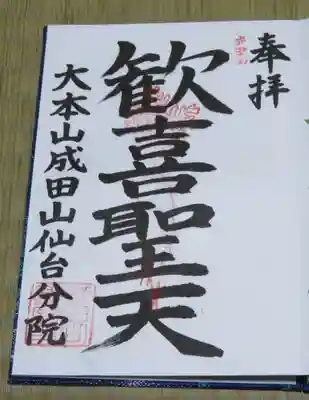 奉拝
歓喜聖天
大本山成田山仙台分院